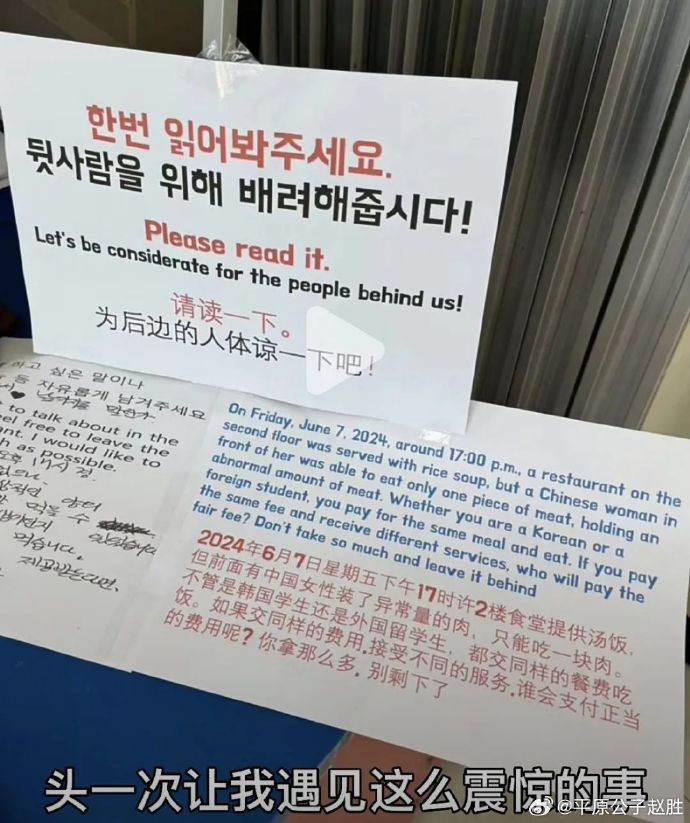 한번 읽어봐주세요.
뒷사람을 위해 배려해줍시다!
Please read it.
Let's be considerate for the people behind us!
请读一下。
为后边的人体谅一下吧！
하고 싶은 말이나
등 자유롭게 남겨주세요
to talk about in the
feel free to leave the
ant. I would like to
h as possible.
On Friday, June 7, 2024, around 17:00 p.m., a restaurant on the
second floor was served with rice soup, but a Chinese woman in
front of her was able to eat only one piece of meat, holding an
abnormal amount of meat. Whether you are a Korean or a
foreign student, you pay for the same meal and eat. If you pay
the same fee and receive different services, who will pay the
fair fee? Don't take so much and leave it behind
2024年6月7日星期五下午17时许2楼食堂提供汤饭，
但前面有中国女性装了异常量的肉，只能吃一块肉。
不管是韩国学生还是外国留学生，都交同样的餐费吃
饭。如果交同样的费用,接受不同的服务,谁会支付正当
的费用呢？你拿那么多，别剩下了
头一次让我遇见这么震惊的事
@平原公子赵胜